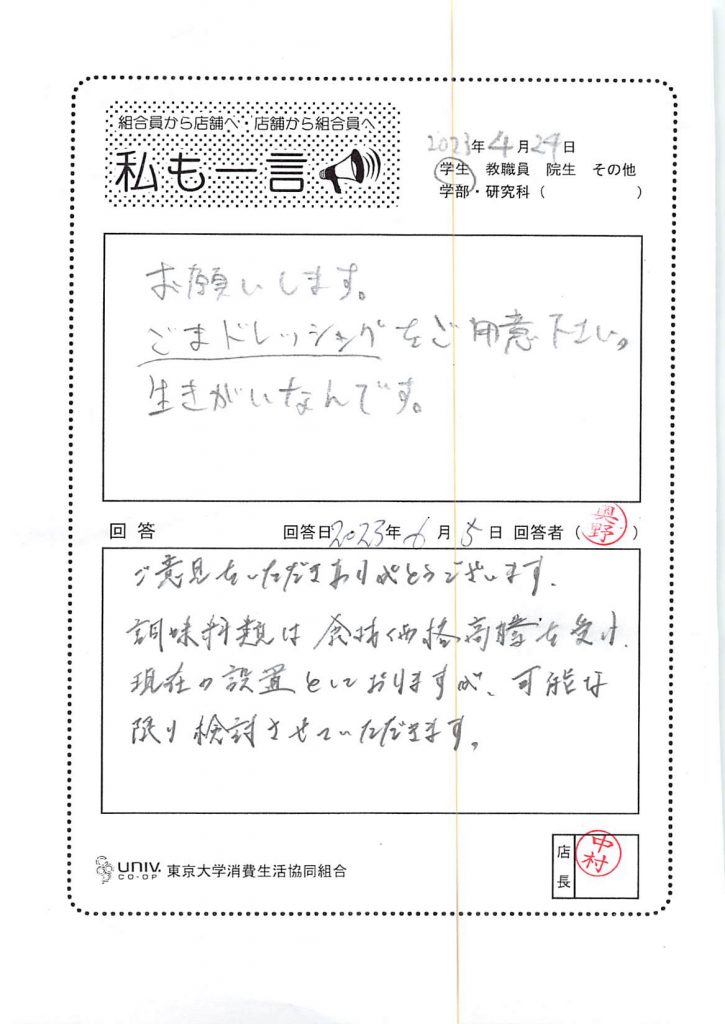 組合員から店舗へ・店舗から組合員へ
私も一言
2023年4月24日
学生 教職員 院生 その他
学部・研究科（ ）
お願いします。
ごまドレッシングをご用意下さい。
生きがいなんです。
回答 回答日2023年6月5日 回答者（奥野）
ご意見をいただきありがとうございます。
調味料類は食材価格高騰を受け、
現在の設置としておりますが、可能な
限り検討させていただきます。
UNIV.
CO-OP
東京大学消費生活協同組合
店長
中村